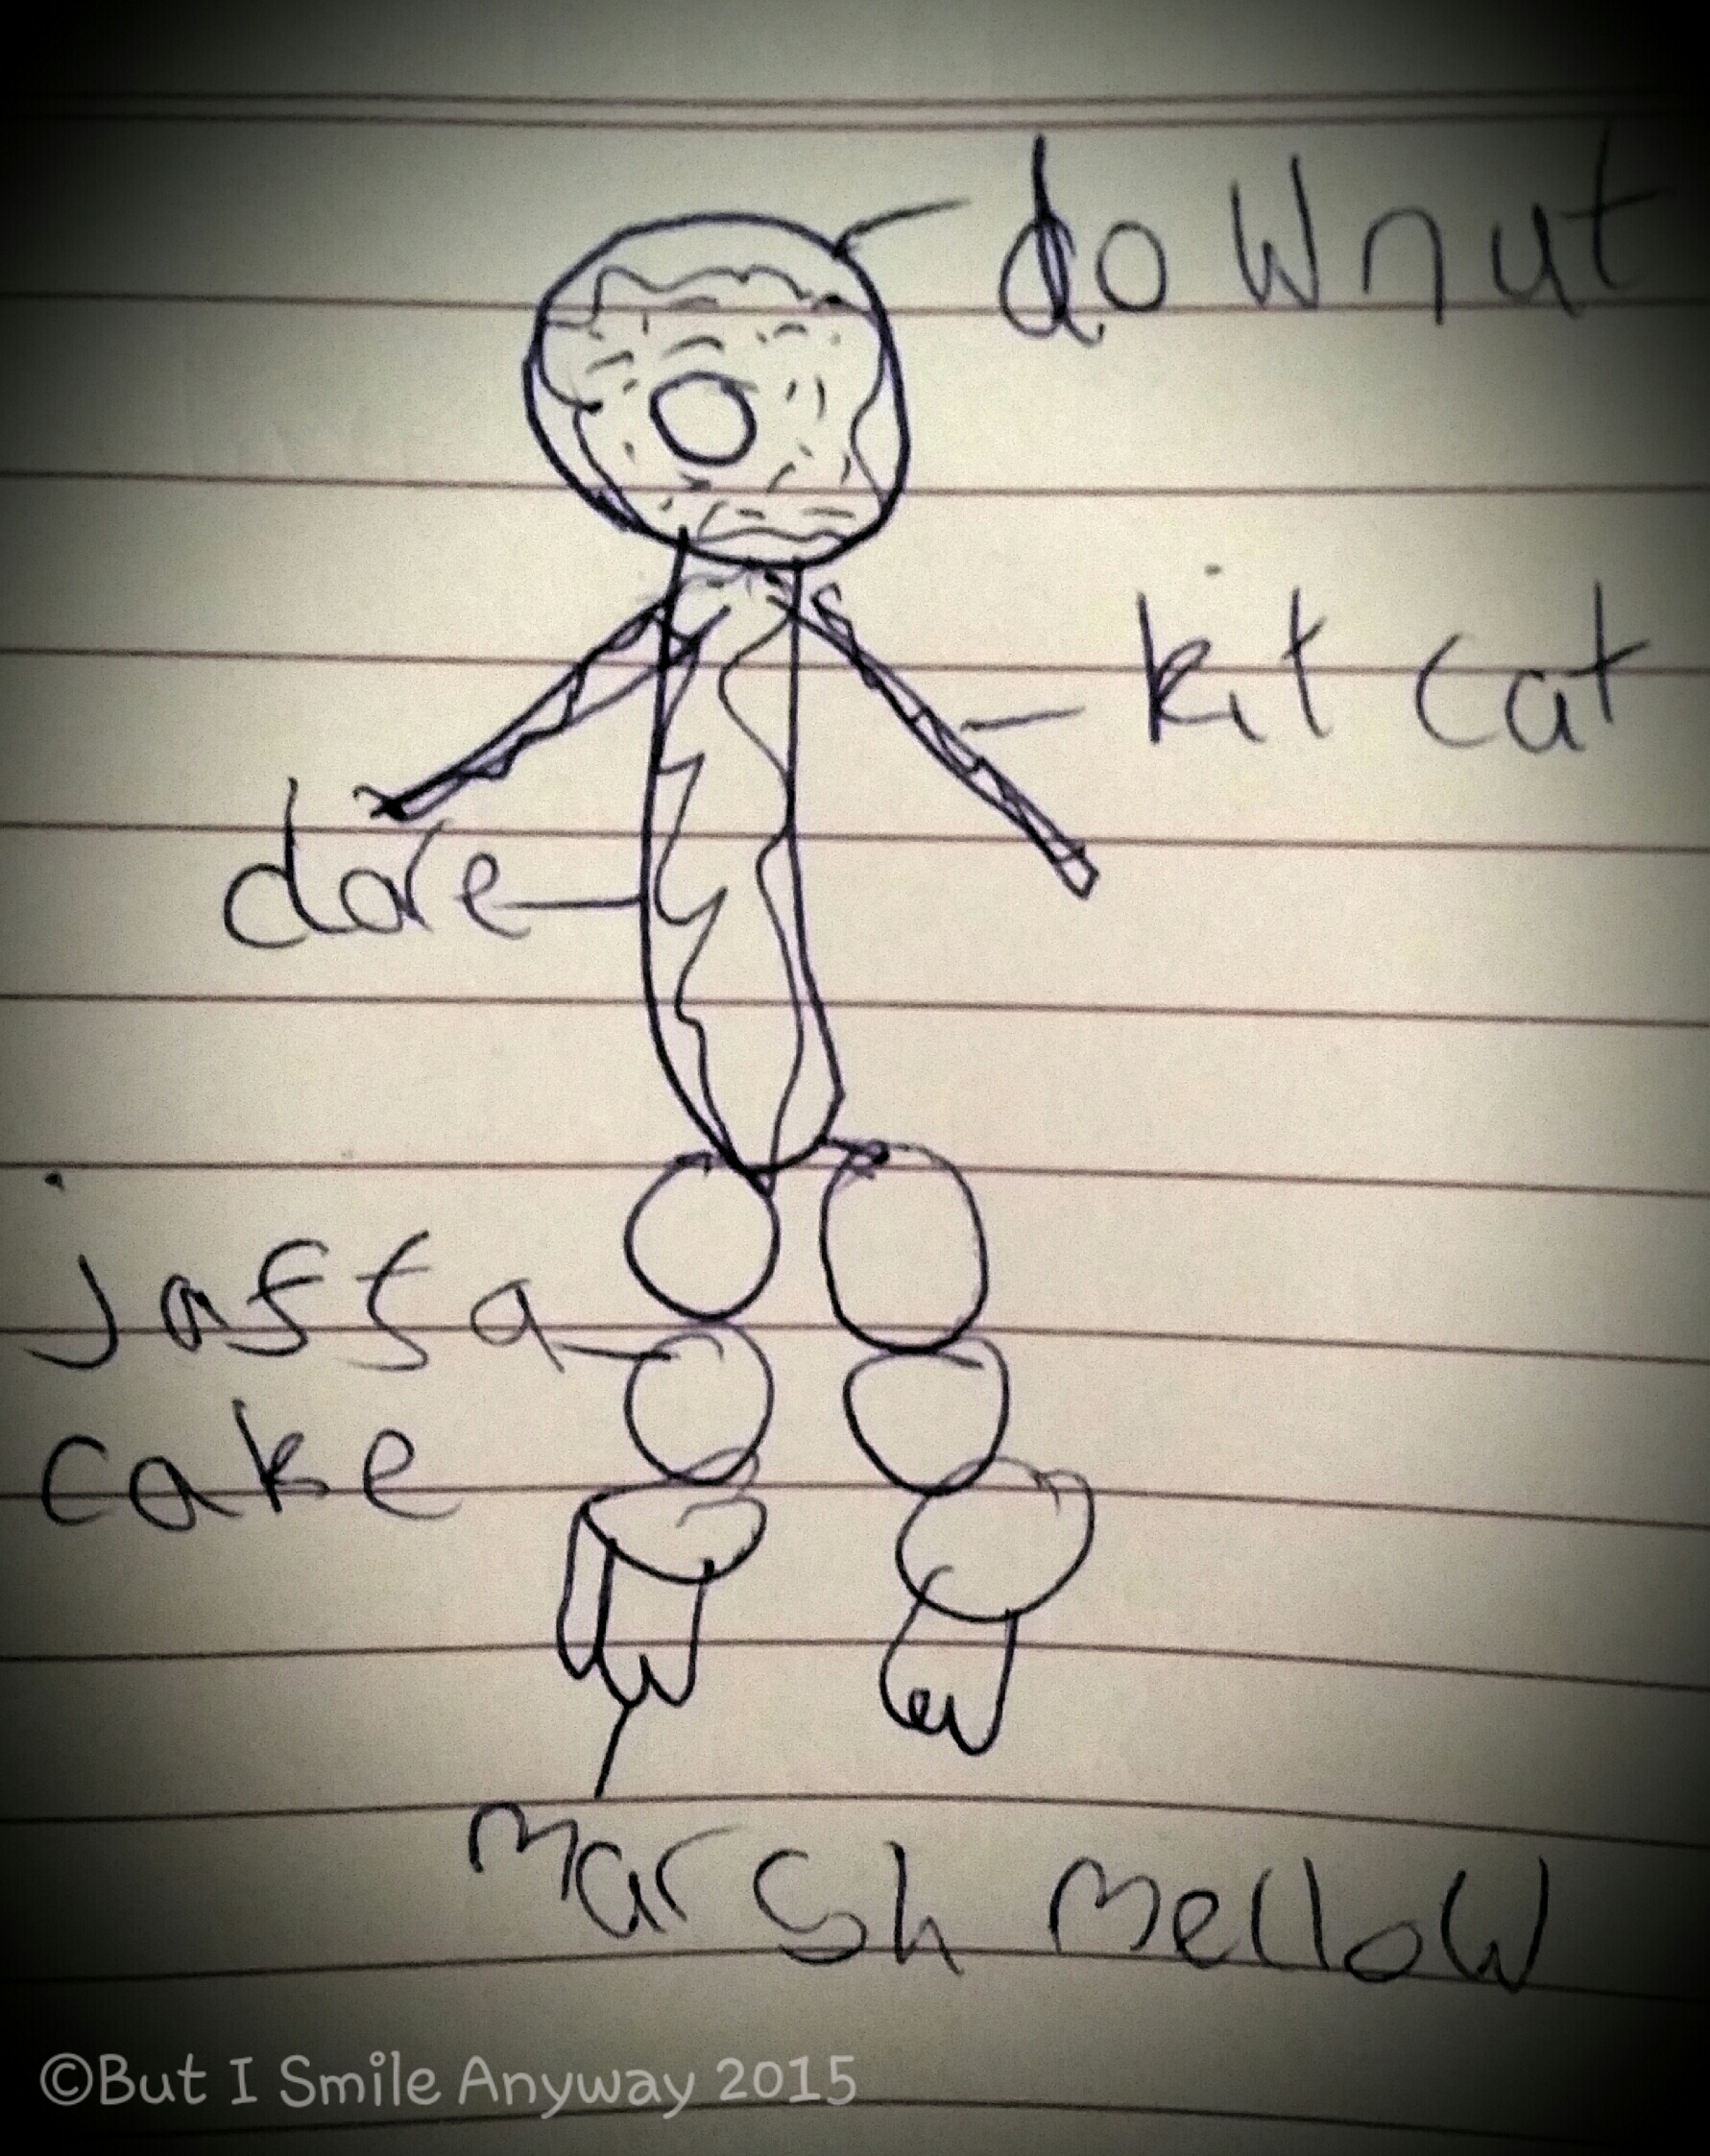 downut
kit cat
dore
jaffa
cake
marsh mellow
©But I Smile Anyway 2015